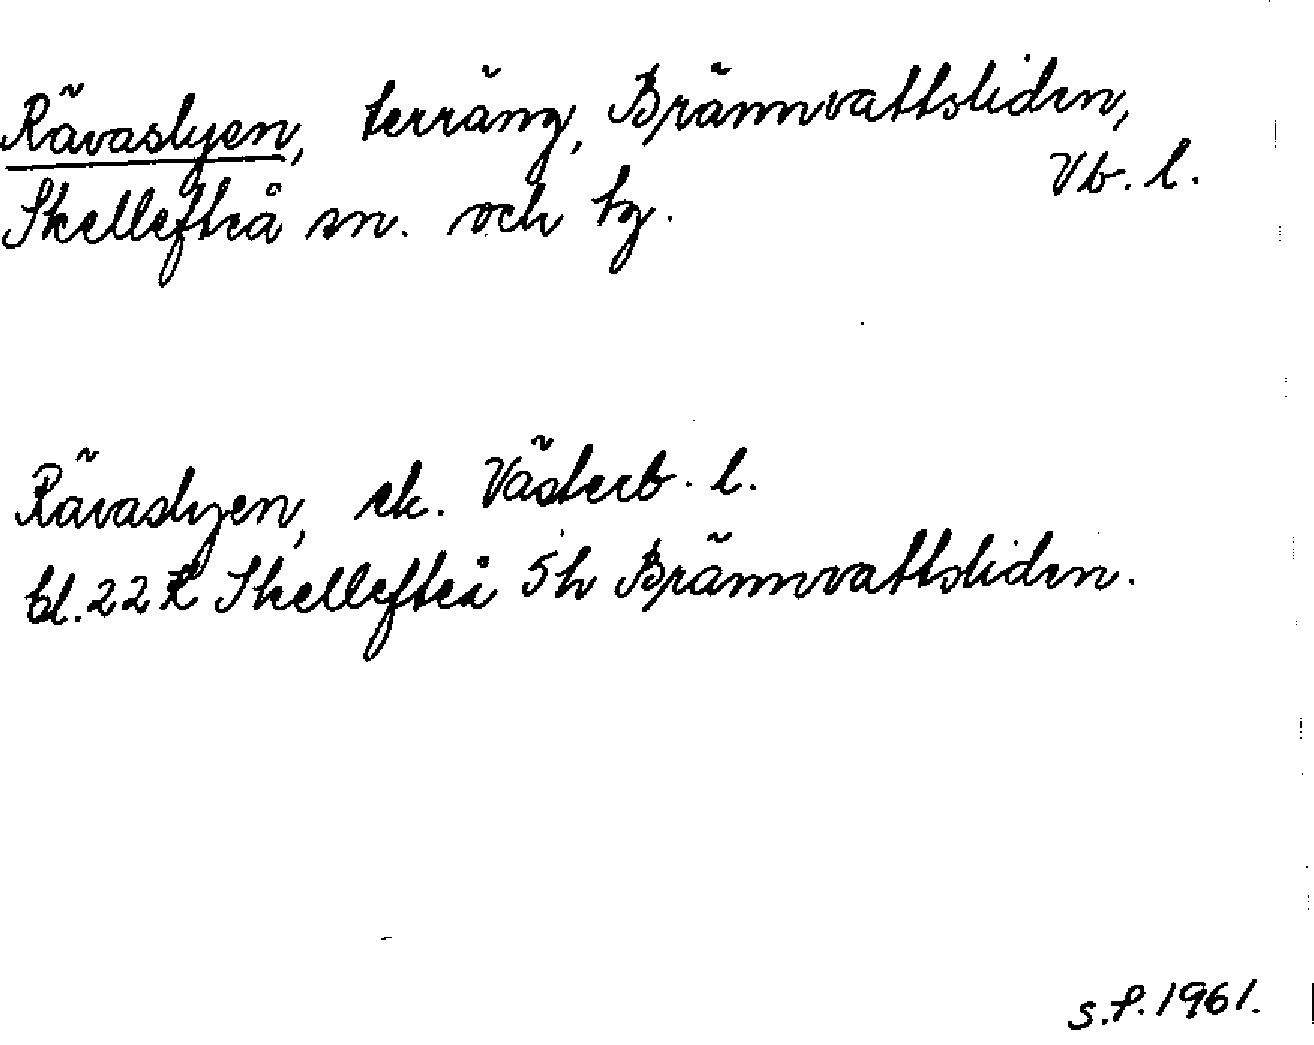 Rävaslyen, terräng, Brännvattsliden,
Vb. l.
Skellefteå sn. och tg.
Rävaslyen, ek. Västerb. l.
bl. 22 K Skellefteå 5h Brännvattsliden.
S.P. 1961.